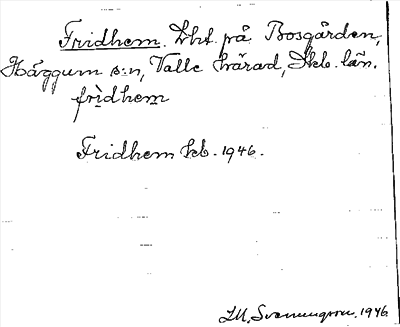 Fridhem. Lht. på Bosgården,
Häggum s:n, Valle härad, Skb. län.
frìdhem
Fridhem kb. 1946.
I.M. Svennungsson. 1946.